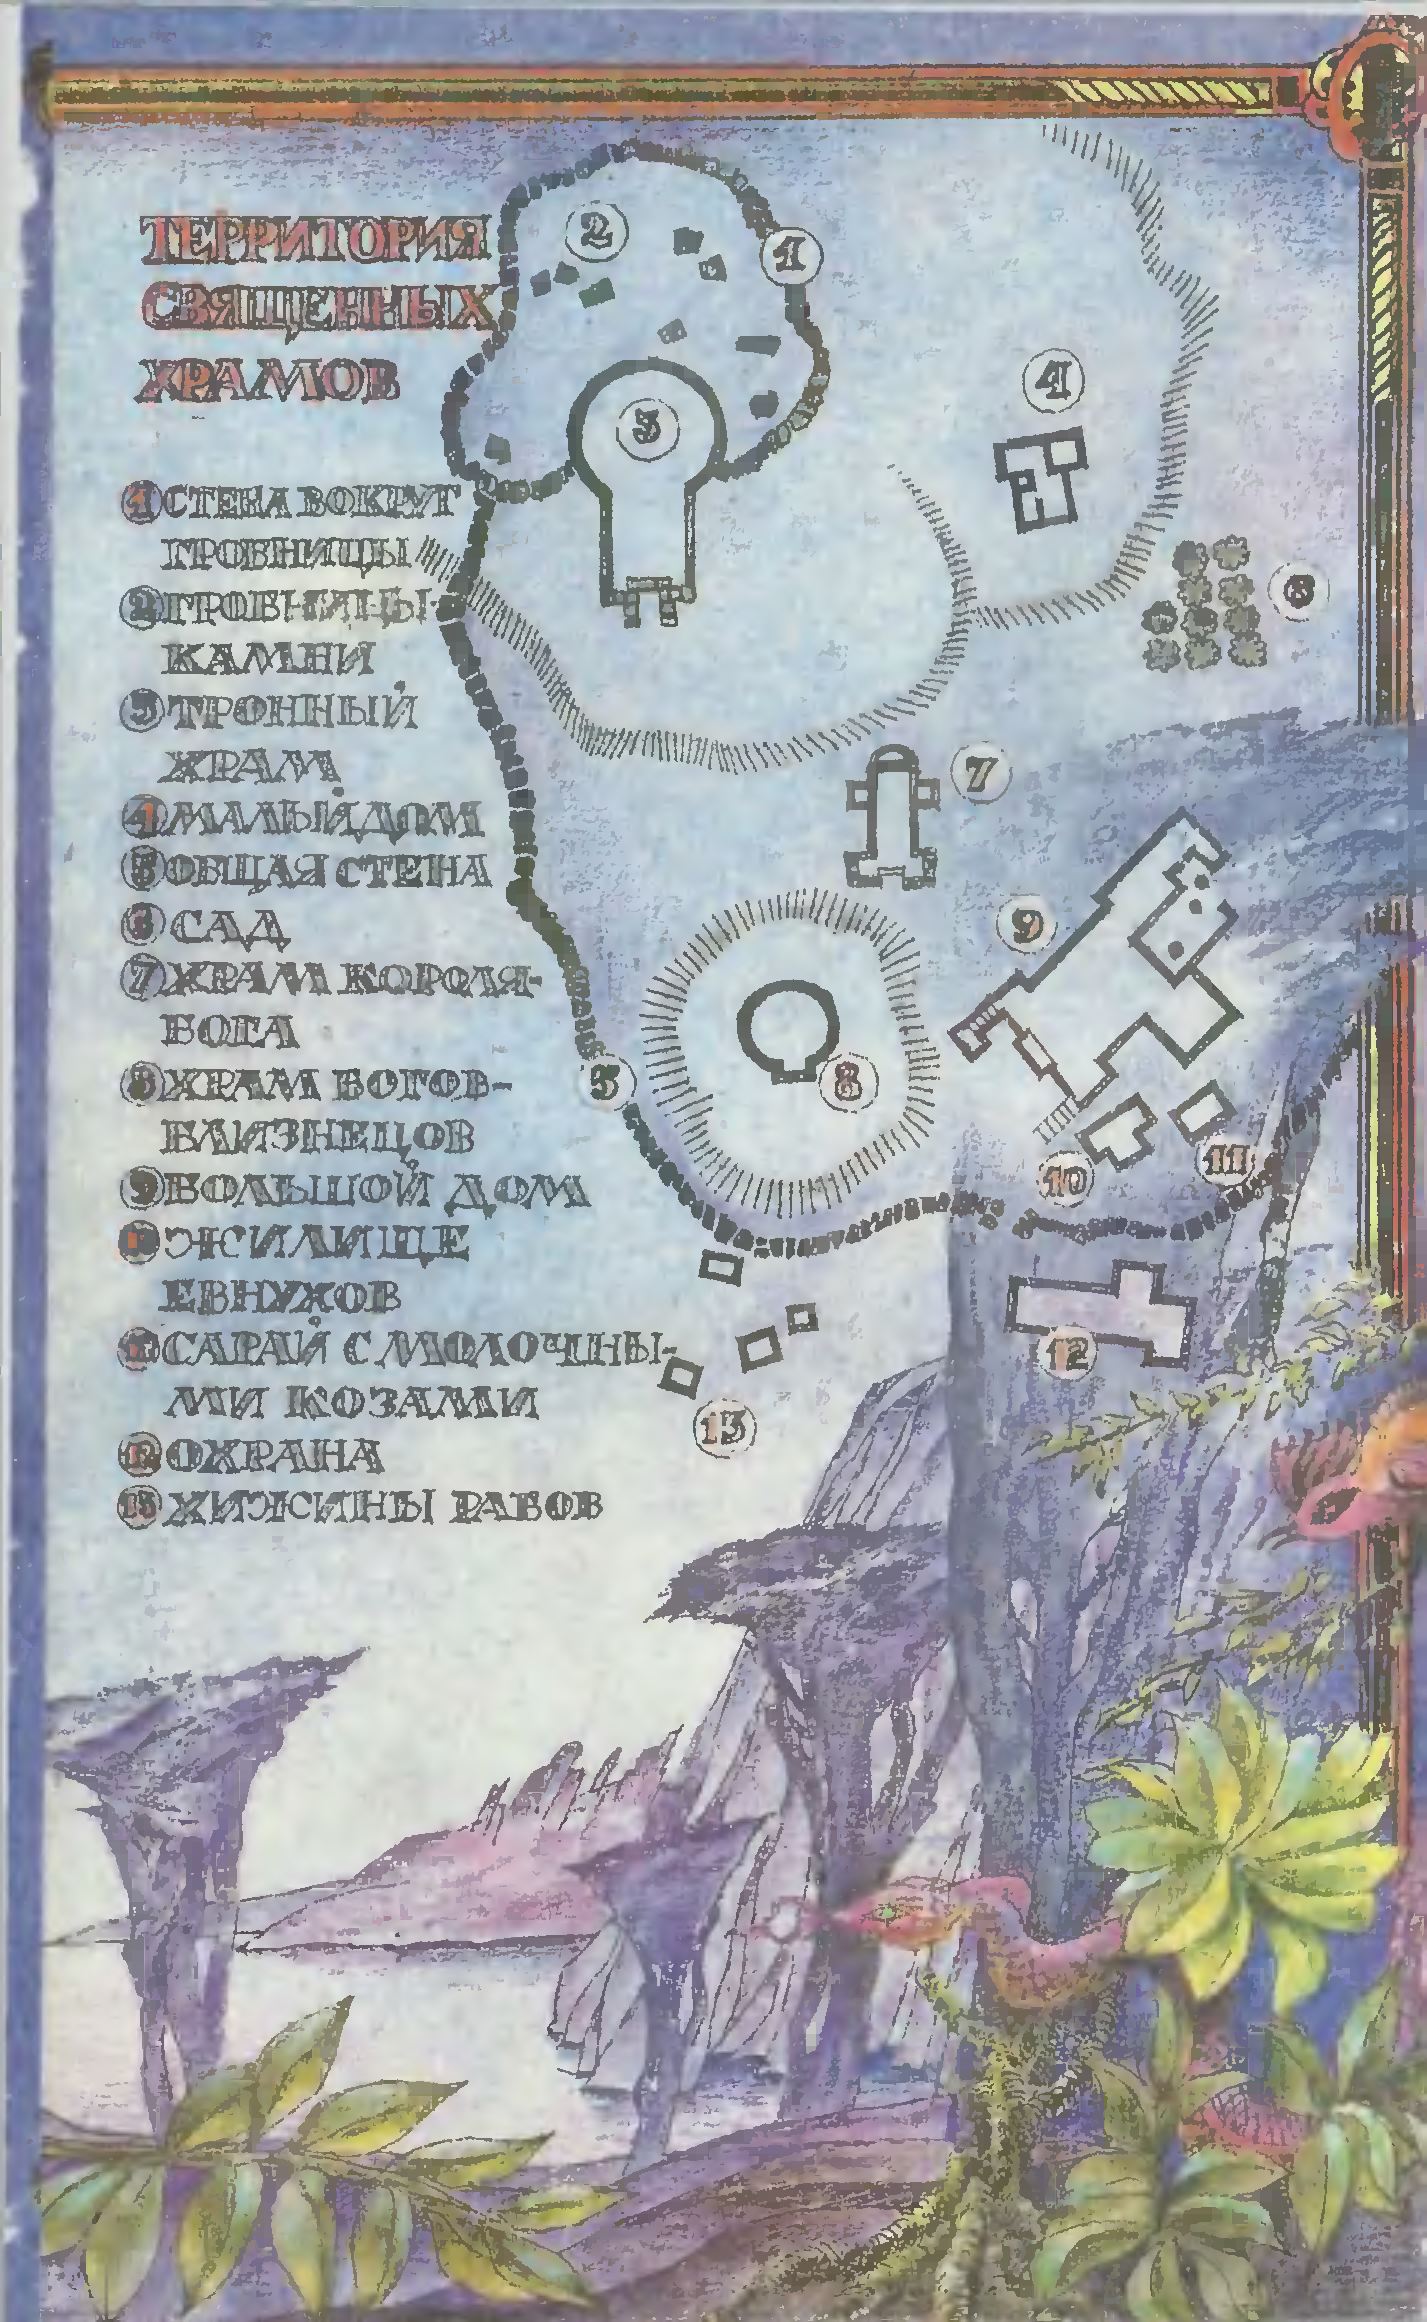 ТЕРРИТОРИЯ
СВЯЩЕННЫХ
ХРАМОВ
1 СТЕНА ВОКРУГ
ГРОБНИЦЫ
2 ГРОБНИЦЫ-
КАМНИ
3 ТРОННЫЙ
ХРАМ
4 МАЛЫЙ ДОМ
5 ОБЩАЯ СТЕНА
6 САД
7 ХРАМ КОРОЛЯ-
БОГА
8 ХРАМ БОГОВ-
БЛИЗНЕЦОВ
9 БОЛЬШОЙ ДОМ
10 ЖИЛИЩЕ
ЕВНУХОВ
11 САРАЙ С МОЛОЧНЫ-
МИ КОЗАМИ
12 ОХРАНА
13 ХИЖИНЫ РАБОВ
2
1
3
4
6
7
9
5
8
10
11
12
13